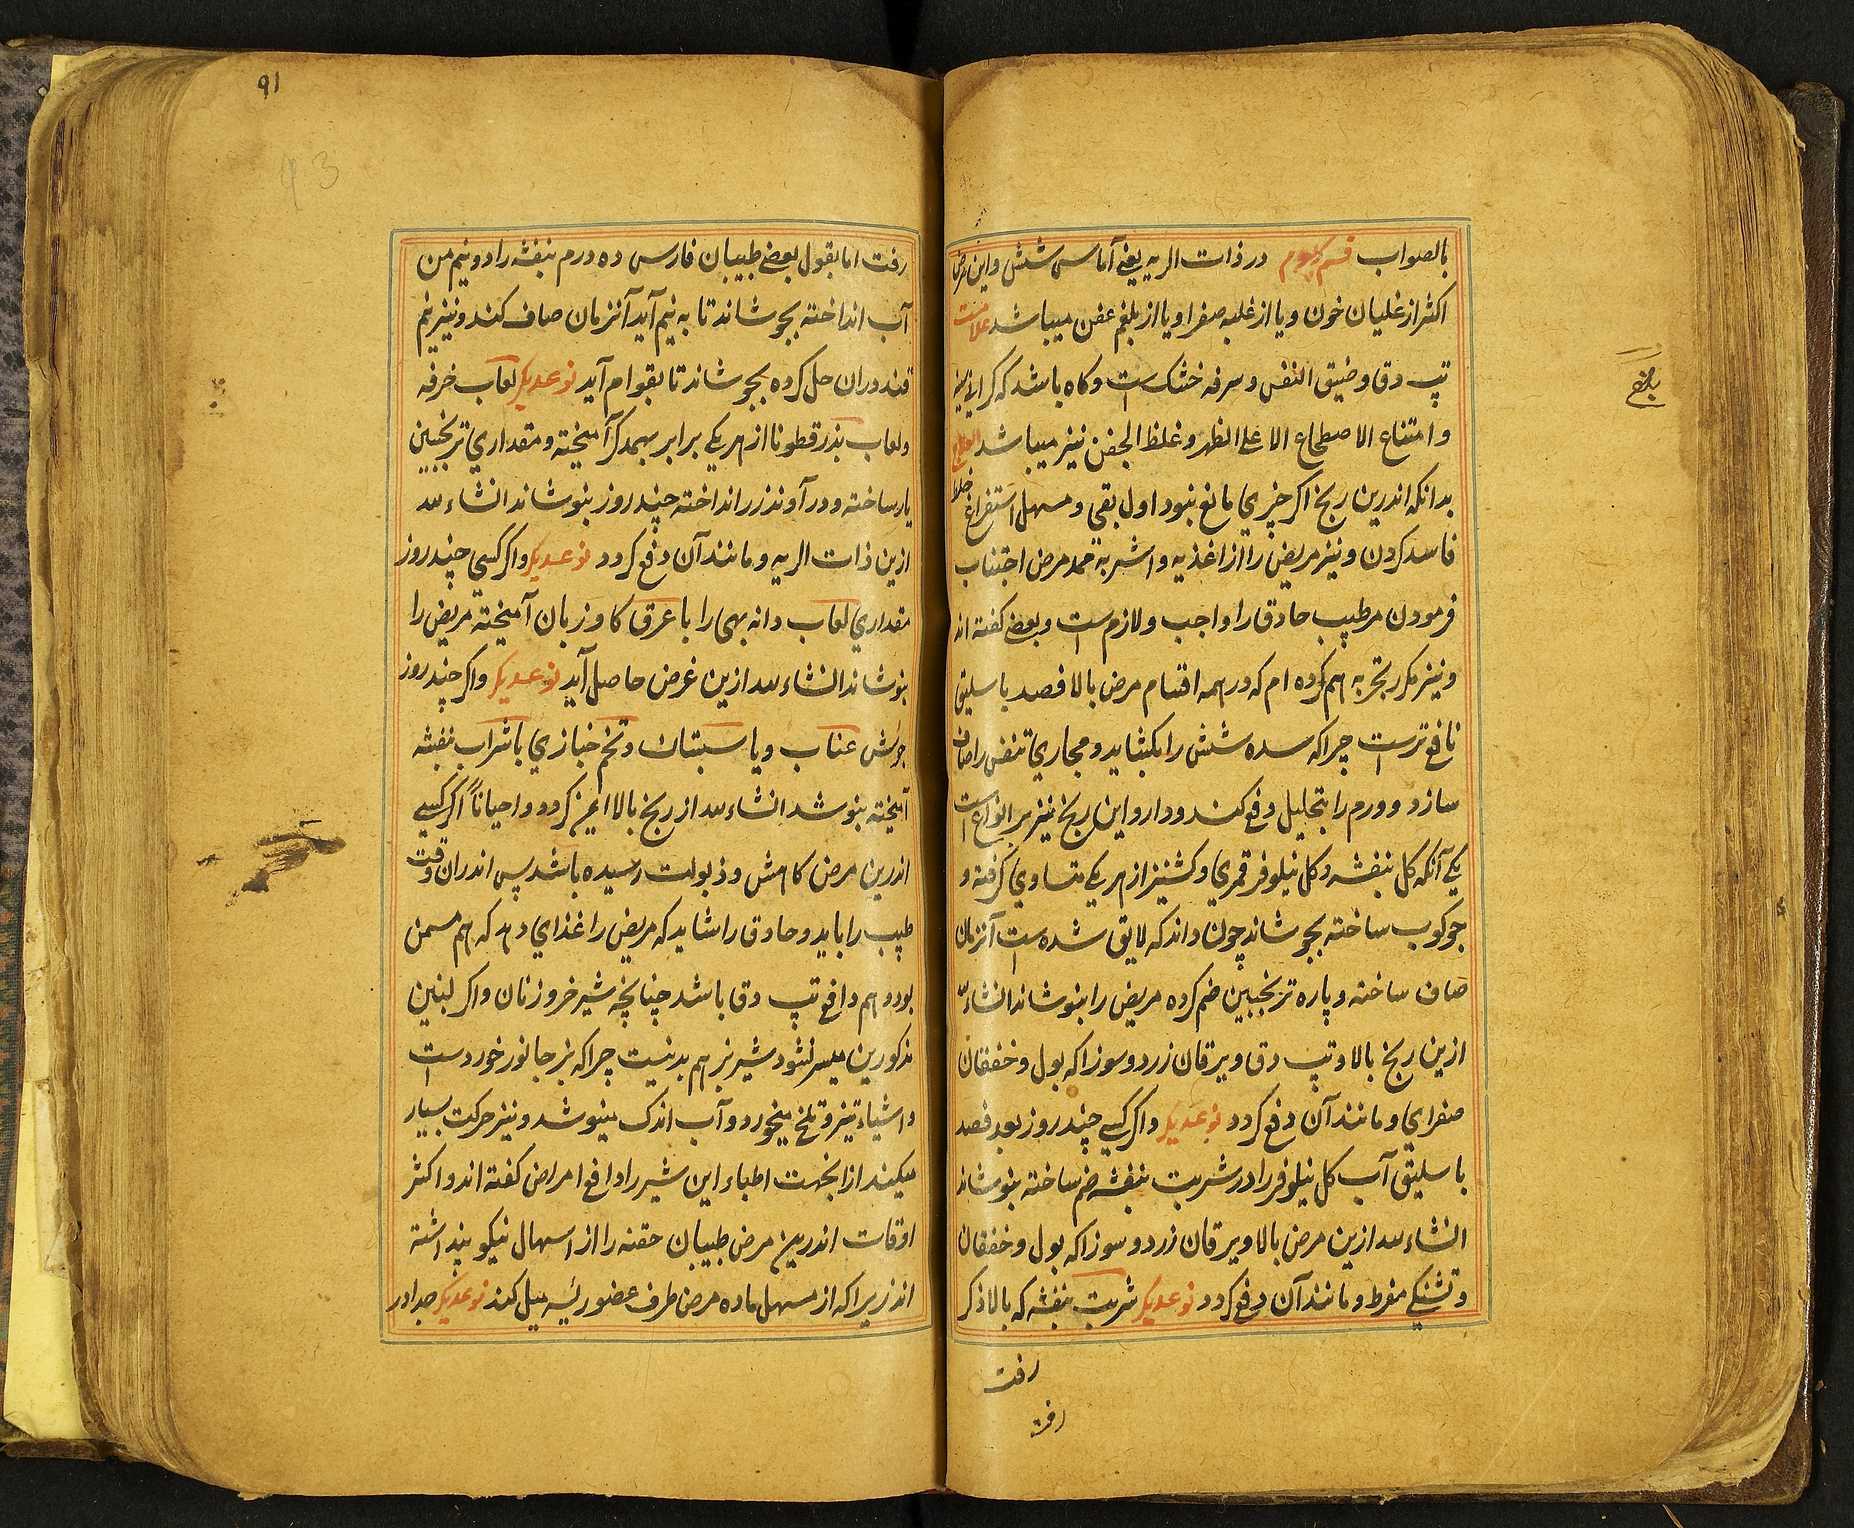 بالصواب قسم در ذات الریه یعنے آماس شش و این مرض
اکثر از غلیان خون و یا از غلبه صفرا و یا از بلغم عفن میباشد علامت
تپ دق و ضیق النفس و سرفه خشک ست و کاه باشد که
و امتناع الاضطجاع الا علی الظهر و غلظ الجفن نیز میباشد العلاج
بدانکه اندرین رنج اکر چیزي مانع نبود اول بقی و مسهل استفراغ خلط
فاسد کردن و نیز مریض را از اغذیه و اشربه ممد مرض اجتناب
فرمودن مر طبیب حاذق را واجب و لازم ست و بعضے کفته اند
و نیز مکرر تجربه هم کرده ام که در همه اقسام مرض بالا فصد باسلیق
نافع تر ست چراکه سده شش را بکشاید و مجاري تنفس را صاف
سازد و ورم را بتحلیل دفع کند و دارو این رنج نیز بر انواع ست
یکے آنکه کل بنفشه و کل نیلوفر قمري و کشنیز از هر یکے متساوي کرفته و
جوکوب ساخته بجوشاند چون داند که لایق شده ست آنزمان
صاف ساخته و پاره ترنجبین ضم کرده مریض را بنوشاند انشاءالله
ازین رنج بالا و تپ دق و یرقان زرد و سوزاکه بول و خفقان
صفراي و مانند آن دفع کردد نوعدیکر و اکر کسے چند روز بعد فصد
باسلیق آب کل نیلوفر را در شربت بنفشه ضم ساخته بنوشاند
انشاءلله ازین مرض بالا و یرقان زرد و سوزاکه بول و خفقان
و تشنکے مفرط و مانند آن دفع کردد نوعدیکر شربت بنفشه که بالا ذکر
رفت
رفت
۹۱
93
رفت اما بقول بعضے طبیبان فارس ده درم بنفشه را دو نیم من
آب انداخته بجوشاند تا به نیم آید آنزمان صاف کند و نیز نیم
قند دران حل کرده بجوشاند تا بقوام آید نوعدیکر لعاب خرفه
و لعاب بذرقطونا از هر یکے برابر بهمدکر آمیخته و مقداري ترنجبین
یار ساخته و در آوند زر انداخته چند روز بنوشاند انشاءلله
ازین ذات الریه و مانند آن دفع کردد نوعدیکر و اکر کسي چند روز
مقداري لعاب دانه بهی را با عرق کاوزبان آمیخته مریض را
بنوشاند انشاءلله ازین غرض حاصل آید نوعدیکر و اکر چند روز
جوش عناب و یا سبستان و تخم خبازي با شراب بنفشه
آمیخته بنوشد انشاءلله از رنج بالا ایمن کردد و احیاناً اکر کسے
اندرین مرض کاهش و ذبولت رسیده باشد پس اندران وقت
طبیب را باید و حاذق را شاید که مریض را غذاي دهد که هم مسمن
بود و هم دافع تپ دق باشد چنانچه شیر خر و زنان و اکر لبنین
مذکورین میسر نشود شیر بز هم بد نیست چراکه بز جانور خورد ست
و اشیاء تیز و تلخ میخورد و آب اندک مینوشد و نیز حرکت بسیار
میکند ازانجهت اطباء این شیر را دافع امراض کفته اند و اکثر
اوقات اندرین مرض طبیبان حقنه را از اسهال نیکو پنداشته
اند زیراکه از مسهل ماده مرض طرف عضو رئیسه میل کند نوعدیکر